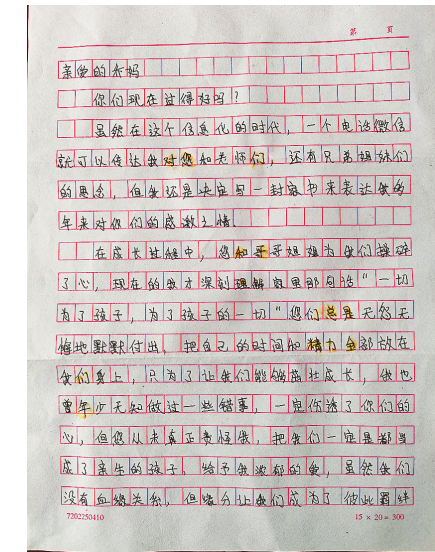 第 页
亲爱的乔妈
你们现在过得好吗？
虽然在这个信息化的时代，一个电话微信
就可以传达我对您和老师们，还有兄弟姐妹们
的思念，但我还是决定写一封家书来表达我多
年来对你们的感激之情。
在成长过程中，您和哥哥姐姐为我们操碎
了心，现在的我才深刻理解家里那句话“一切
为了孩子，为了孩子的一切”您们总是无怨无
悔地默默付出，把自己的时间和精力全部放在
我们身上，只为了让我们能够茁壮成长，我也
曾年少无知做过一些错事，一定伤透了你们的
心，但您从未真正责怪我，把我们一定是都当
成了亲生的孩子，给予我浓郁的爱，虽然我们
没有血缘关系，但缘分让我们成为了彼此羁绊
7202250410
15 × 20 = 300